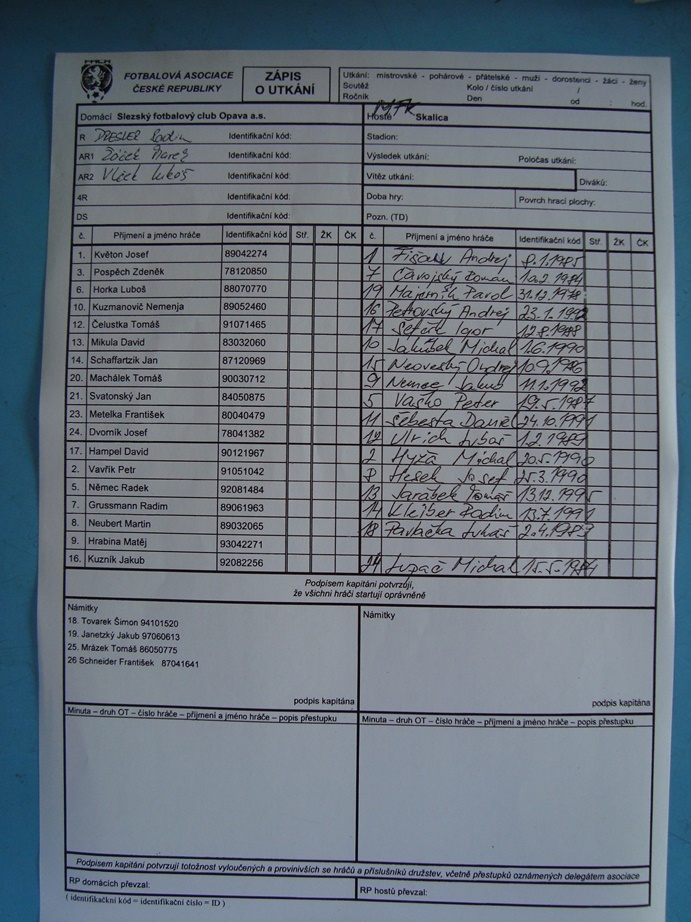 FOTBALOVÁ ASOCIACE
ČESKÉ REPUBLIKY
ZÁPIS
O UTKÁNÍ
Utkání: mistrovské - pohárové - přátelské - muži - dorostenci - žáci - ženy
Soutěž Kolo / číslo utkání /
Ročník Den od : hod.
Domácí Slezský fotbalový club Opava a.s.
Hosté MFK Skalica
R Identifikační kód:
Stadion:
AR1 Identifikační kód:
Výsledek utkání: Poločas utkání:
AR2 Vlček Identifikační kód:
Vítěz utkání: Diváků:
4R Identifikační kód:
Doba hry: Povrch hrací plochy:
DS Identifikační kód:
Pozn. (TD)
č. Příjmení a jméno hráče Identifikační kód Stř. ŽK ČK č. Příjmení a jméno hráče Identifikační kód Stř. ŽK ČK
1. Květon Josef 89042274 1 Andrej 8.1.1985
3. Pospěch Zdeněk 78120850 7 Roman 10.2.1984
6. Horka Luboš 88070770 19 Majerník Pavol 31.12.1978
10. Kuzmanovič Nemenja 89052460 16 Petrovský Andrej 23.1.1992
12. Čelustka Tomáš 91071465 17 Igor 12.8.1988
13. Mikula David 83032060 10 Jakúbek Michal 1.6.1990
14. Schaffartzik Jan 87120969 15 Neoveský Ondrej 10.9.1986
20. Machálek Tomáš 90030712 9 Nemec Jakub 11.1.1992
21. Svatonský Jan 84050875 5 Vaško Peter 19.5.1987
23. Metelka František 80040479 11 Šebesta 24.10.1991
24. Dvorník Josef 78041382 12 Ulrich 1.2.1989
17. Hampel David 90121967 2 Hyža Michal 20.5.1990
2. Vavřík Petr 91051042 Hešek Josef 25.3.1990
5. Němec Radek 92081484 13 Jarábek Tomáš 13.12.1995
7. Grussmann Radim 89061963 14 Kleiber Radim 13.7.1991
8. Neubert Martin 89032065 18 Pavačka Lukáš 2.4.1983
9. Hrabina Matěj 93042271
16. Kuzník Jakub 92082256 Lupač Michal 15.5.1984
Podpisem kapitáni potvrzují,
že všichni hráči startují oprávněně
Námitky
18. Tovarek Šimon 94101520
19. Janetzký Jakub 97060613
25. Mrázek Tomáš 86050775
26 Schneider František 87041641
podpis kapitána
Námitky
podpis kapitána
Minuta – druh OT – číslo hráče – příjmení a jméno hráče – popis přestupku
Minuta – druh OT – číslo hráče – příjmení a jméno hráče – popis přestupku
Podpisem kapitáni potvrzují totožnost vyloučených a provinivších se hráčů a příslušníků družstev, včetně přestupků oznámených delegátem asociace
RP domácích převzal:
RP hostů převzal:
( identifikační kód = identifikační číslo = ID )